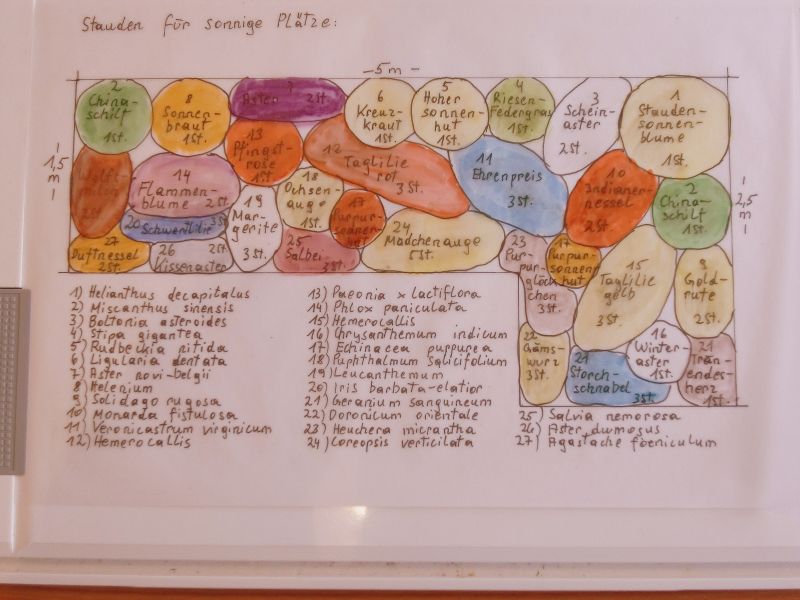 Stauden für sonnige Plätze:
5m
1,5 m
2,5 m
2 China-schilf 1St.
8 Sonnen-braut 1St.
Astern 2St.
6 Kreuz-kraut 1St.
5 Hoher sonnen-hut 1St.
4 Riesen-Federgras 1St.
3 Schein-aster 2St.
1 Stauden-sonnen-blume 1St.
2St.
14 Flammen-blume 2St.
13 Pfingst-rose 1St.
12 Taglilie rot 3St.
11 Ehrenpreis 3St.
10 Indianer-nessel 2St.
2 China-schilf 1St.
18 Ochsen-auge 1St.
17 Purpur-sonnen-hut
20 Schwertlilie 3St.
19 Mar-gerite 3St.
24 Mädchenauge 5St.
27 Duftnessel 2St.
26 Kissenaster 2St.
25 Salbei 3St.
23 Pur-pur-glöck-chen 3St.
17 Purpur-sonnen-hut
15 Taglilie gelb 3St.
9 Gold-rute 2St.
22 Gäms-wurz 3St.
21 Storch-schnabel 3St.
16 Winter-aster 1St.
21 Trän-endes-herz 1St.
1) Helianthus decapitalus
2) Miscanthus sinensis
3) Boltonia asteroides
4) Stipa gigantea
5) Rudbeckia nitida
6) Ligularia dentata
7) Aster novi-belgii
8 Helenium
9) Solidago rugosa
10) Monarda fistulosa
11) Veronicastrum virginicum
12) Hemerocallis
13) Paeonia x lactiflora
14) Phlox paniculata
15) Hemerocallis
16) Chrysanthemum indicum
17) Echinacea puppurea
18) Puphthalmum salicifolium
19) Leucanthemum
20) Iris barbata-elatior
21) Geranium sanguineum
22) Doronicum orientale
23) Heuchera micrantha
24) Coreopsis verticilata
25) Salvia nemorosa
26) Aster dumosus
27) Agastache foeniculum